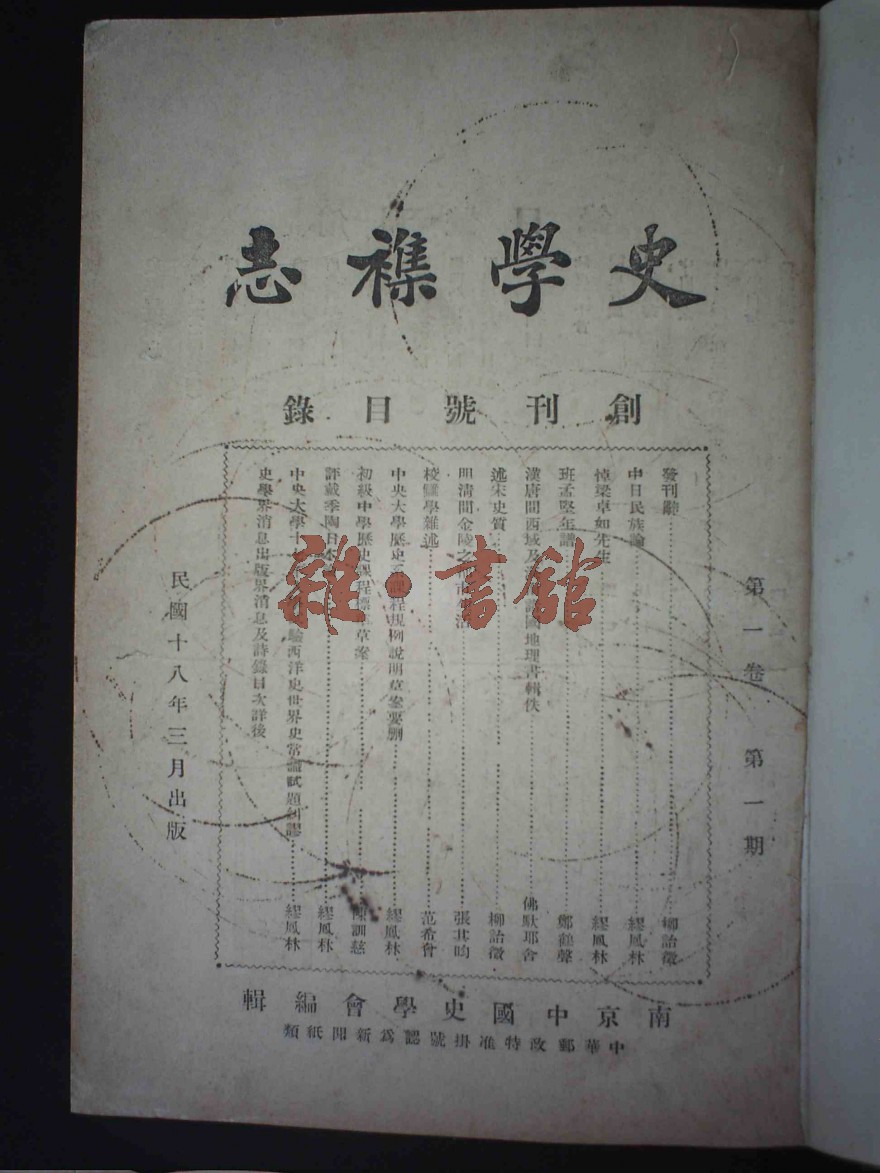 史學襍志
創刊號目錄
第一卷 第一期
發刊辭 柳詒徵
中日民族論 繆鳳林
悼梁卓如先生 繆鳳林
班孟堅年譜 鄭鶴聲
漢唐間西域及 國地理書輯佚 佛馱耶舍
述宋史質 柳詒徵
明清間金陵之 張其昀
校讎學雜述 范希曾
中央大學歷史系課程規例說明草案要刪 繆鳳林
初級中學歷史課程標準草案 陳訓慈
評戴季陶日本 繆鳳林
中央大學十 驗西洋史世界史常識試題糾謬 繆鳳林
史學界消息出版界消息及詩錄目次詳後
民國十八年三月出版
南京中國史學會編輯
中華郵政特准掛號認爲新聞紙類
雜·書館